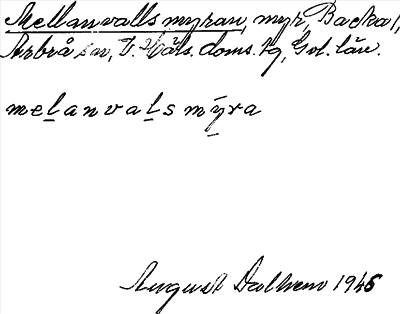 Mellanvallsmyran, myr, Backa 1,
Arbrå sn, V. Häls. doms. tg, Gvl. län.
mel̲anval̲s mȳ̲ra
August Dalhem 1945